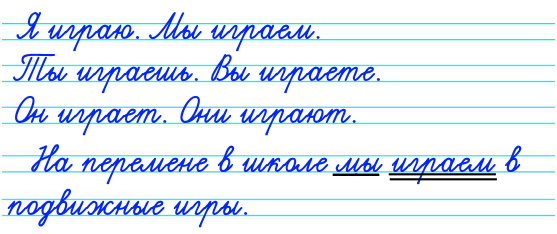 Я играю. Мы играем.
Ты играешь. Вы играете.
Он играет. Они играют.
На перемене в школе мы играем в
подвижные игры.